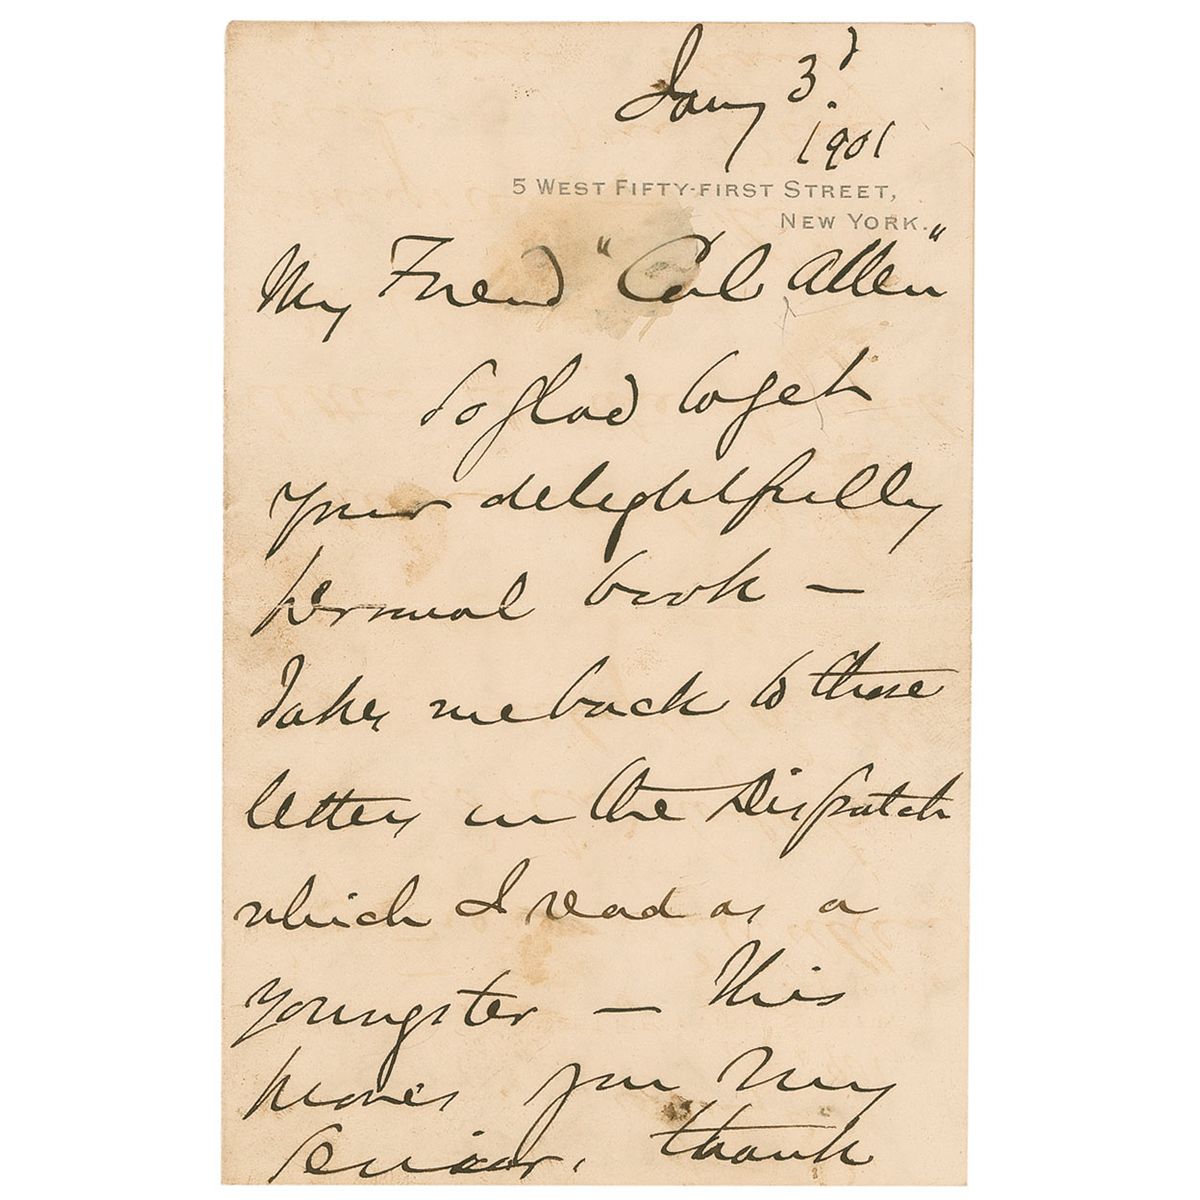 Jany 3d
1901
5 WEST FIFTY-FIRST STREET,
NEW YORK.
My Friend "Col Allen"
So glad to get
your delightfully
personal book —
Takes me back to those
letters in the Dispatch
which I read as a
youngster — This
proves you my
Senior. thank